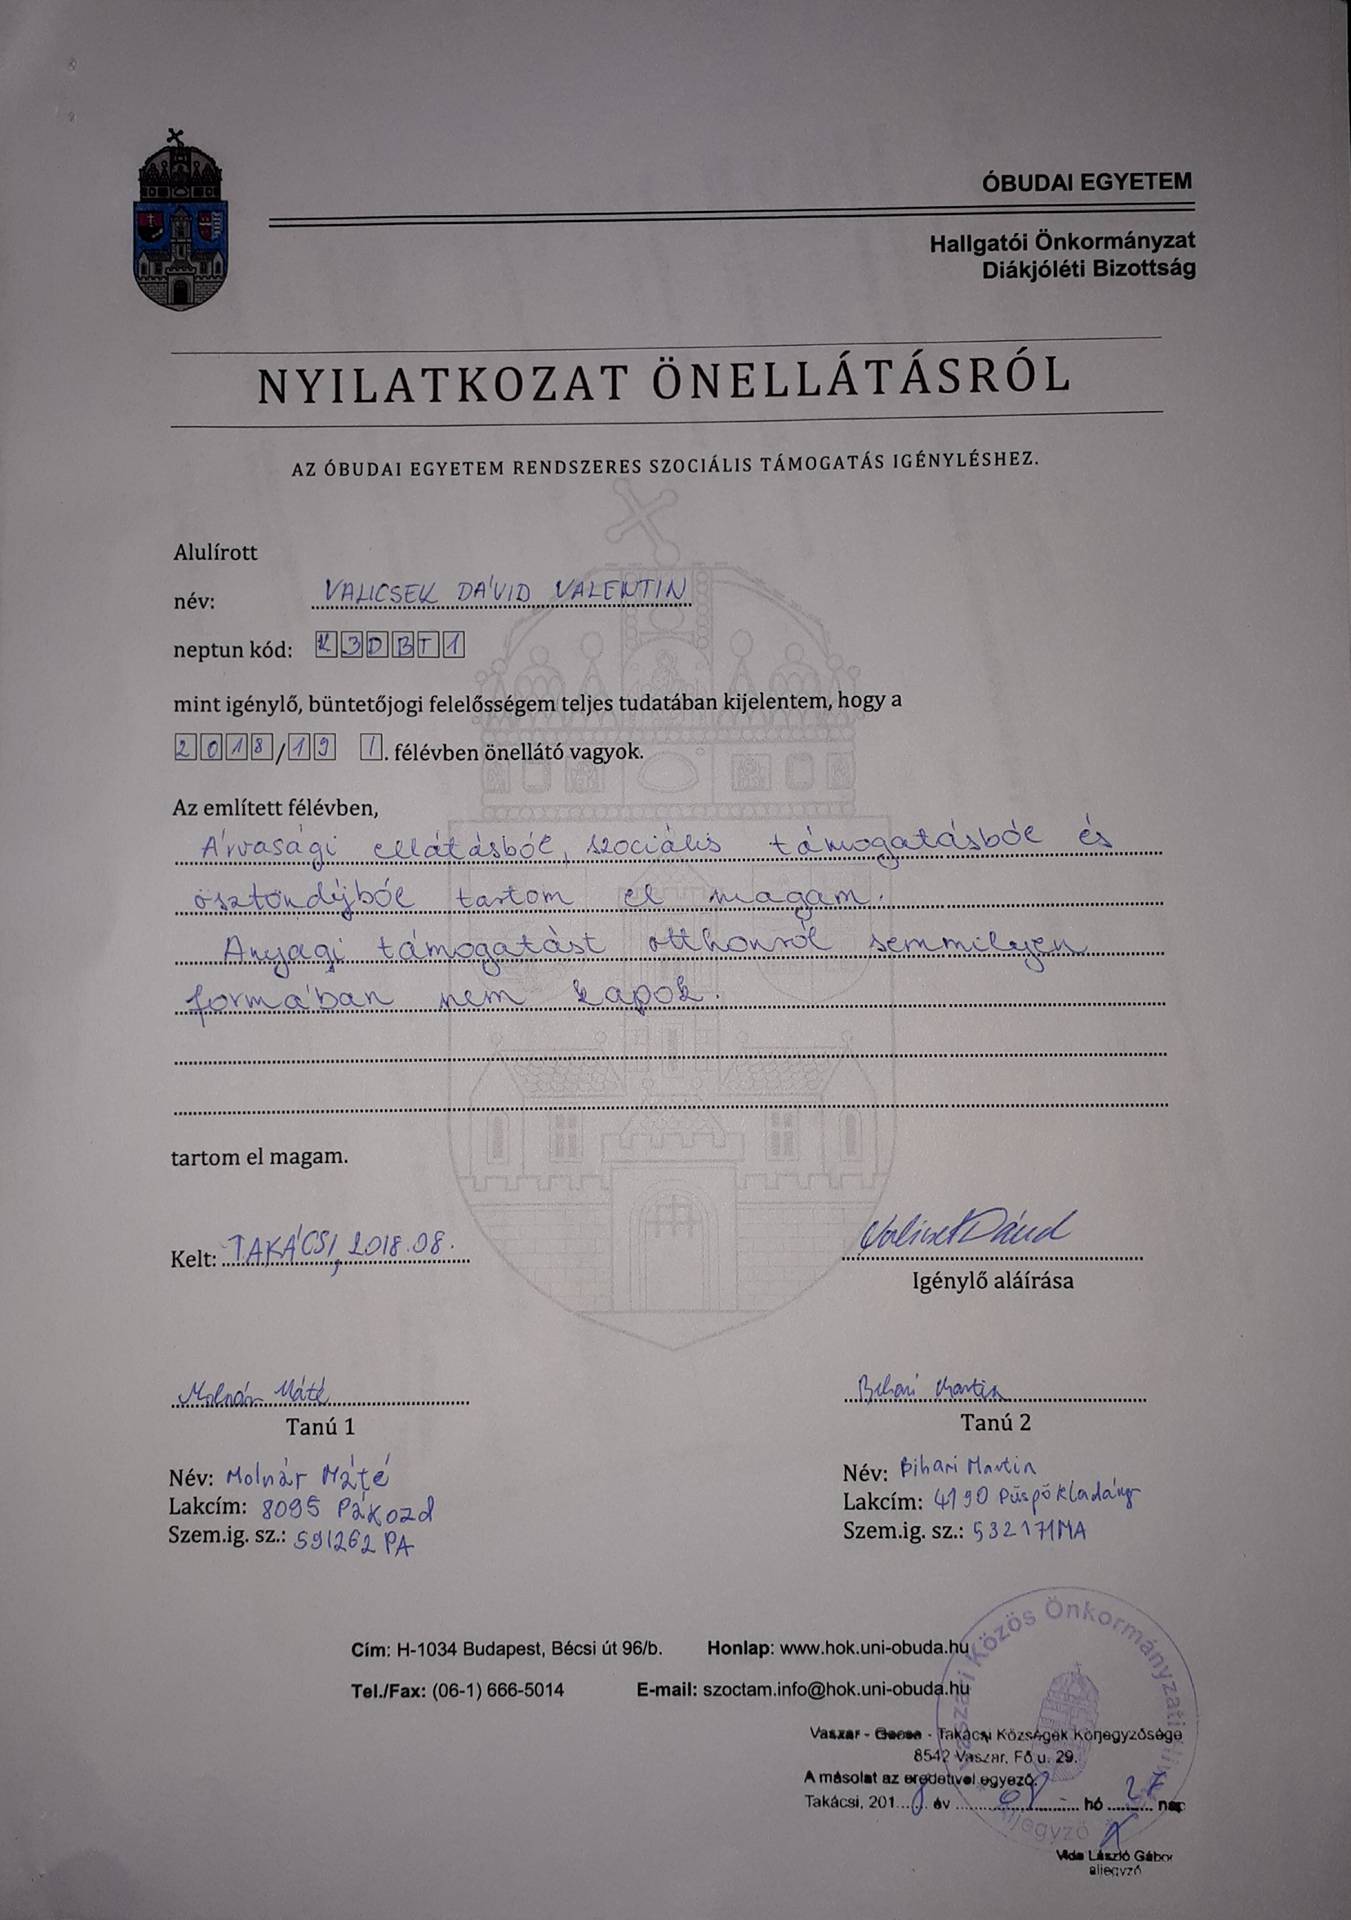 ÓBUDAI EGYETEM
Hallgatói Önkormányzat
Diákjóléti Bizottság
NYILATKOZAT ÖNELLÁTÁSRÓL
AZ ÓBUDAI EGYETEM RENDSZERES SZOCIÁLIS TÁMOGATÁS IGÉNYLÉSHEZ.
Alulírott
név: VALICSEK DÁVID VALENTIN
neptun kód: K3DBT1
mint igénylő, büntetőjogi felelősségem teljes tudatában kijelentem, hogy a
2018/19 I. félévben önellátó vagyok.
Az említett félévben,
Árvasági ellátásból, szociális támogatásból és
ösztöndíjból tartom el magam.
Anyagi támogatást otthonról semmilyen
formában nem kapok.
tartom el magam.
Kelt: TAKÁCSI, 2018.08.
Valicsek Dávid
Igénylő aláírása
Molnár Máté
Bihari Martin
Tanú 1
Tanú 2
Név: Molnár Máté
Lakcím: 8095 Pákozd
Szem.ig. sz.: 591262 PA
Név: Bihari Martin
Lakcím: 4190 Püspökladány
Szem.ig. sz.: 532171MA
Cím: H-1034 Budapest, Bécsi út 96/b. Honlap: www.hok.uni-obuda.hu
Tel./Fax: (06-1) 666-5014 E-mail: szoctam.info@hok.uni-obuda.hu
Vaszari Közös Önkormányzati
Vaszar - Gecse - Takácsi Községek Körjegyzősége
8542 Vaszar, Fő u. 29.
A másolat az eredetivel egyező.
Takácsi, 2018 év 08 hó 27 nap
Aljegyző
Vida László Gábor
aljegyző